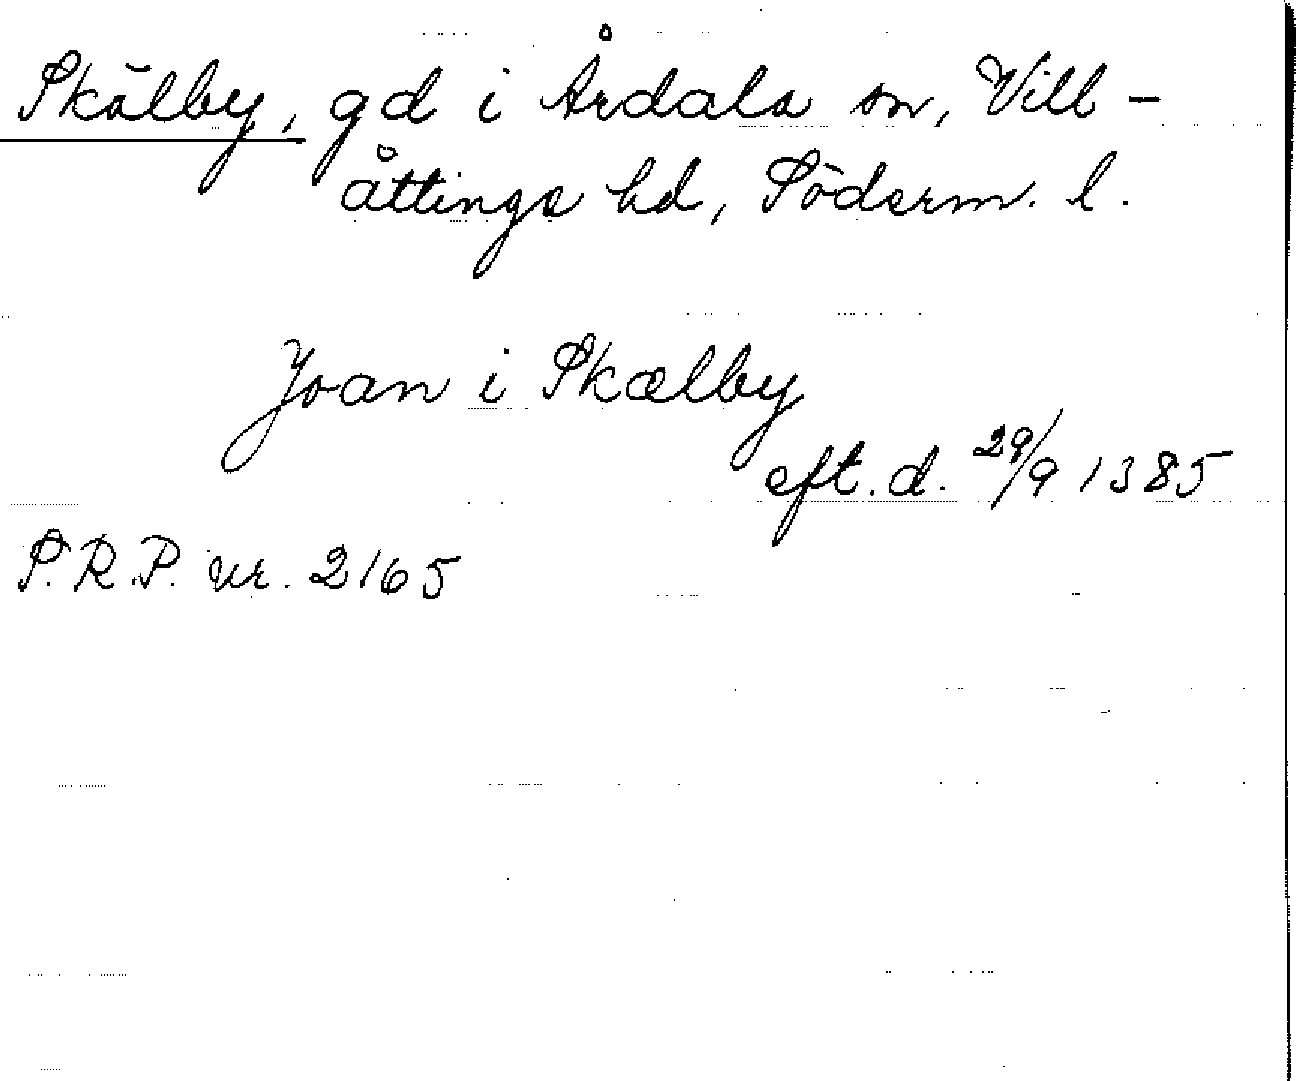 Skälby, gd i Årdala sn, Vill-
åttinge hd, Söderm. l.
Joan i Skælby
eft. d. 29/9 1385
S.R.P. nr. 2165